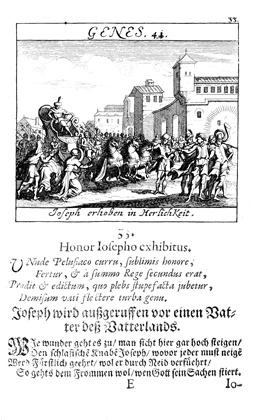 33.
GENES. 41.
Joseph erhoben in Herlichkeit.
33.
Honor Iosepho exhibitus.
UNde Pelusiaco curru, sublimis honore,
Fertur, & à summo Rege secundus erat,
Prodit & edictum, quo plebs stupefacta jubetur,
Demissum vati flectere turba genu.
Joseph wird außgeruffen vor einen Vat-
ter deß Vatterlands.
WJe wunder gehts zu / man sicht hier gar hoch steigen /
Den schlafischē Knabē Joseph / wovor jeder muß neigē
Werd Fürstlich geehrt / wol er durch Neid verführt /
So gehts dem Frommen wol / wen Gott sein Sachen führt.
E
Jo-